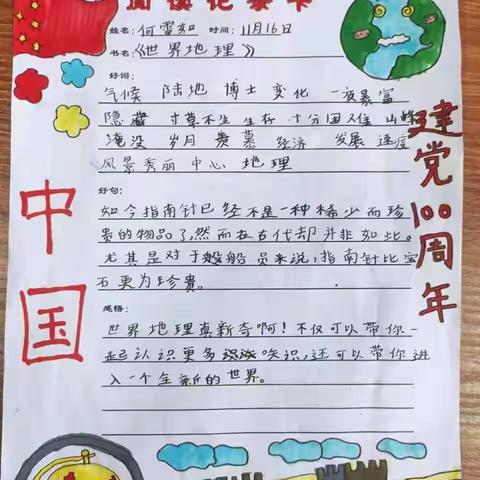 阅读记录卡
姓名：何雪如 时间：11月16日
书名：《世界地理》
好词：
气候 陆地 博士 变化 一夜暴富
隐藏 寸草不生 生存 十分困难 山峰
淹没 岁月 羡慕 经济 发展 速度
风景秀丽 中心 地理
好句：
如今指南针已经不是一种稀少而珍
贵的物品了,然而在古代却并非如此。
尤其是对于船员来说,指南针比宝
石更为珍贵。
感悟：
世界地理真新奇啊！不仅可以带你一
起认识更多知识,还可以带你进
入一个全新的世界。
中国
建党100周年